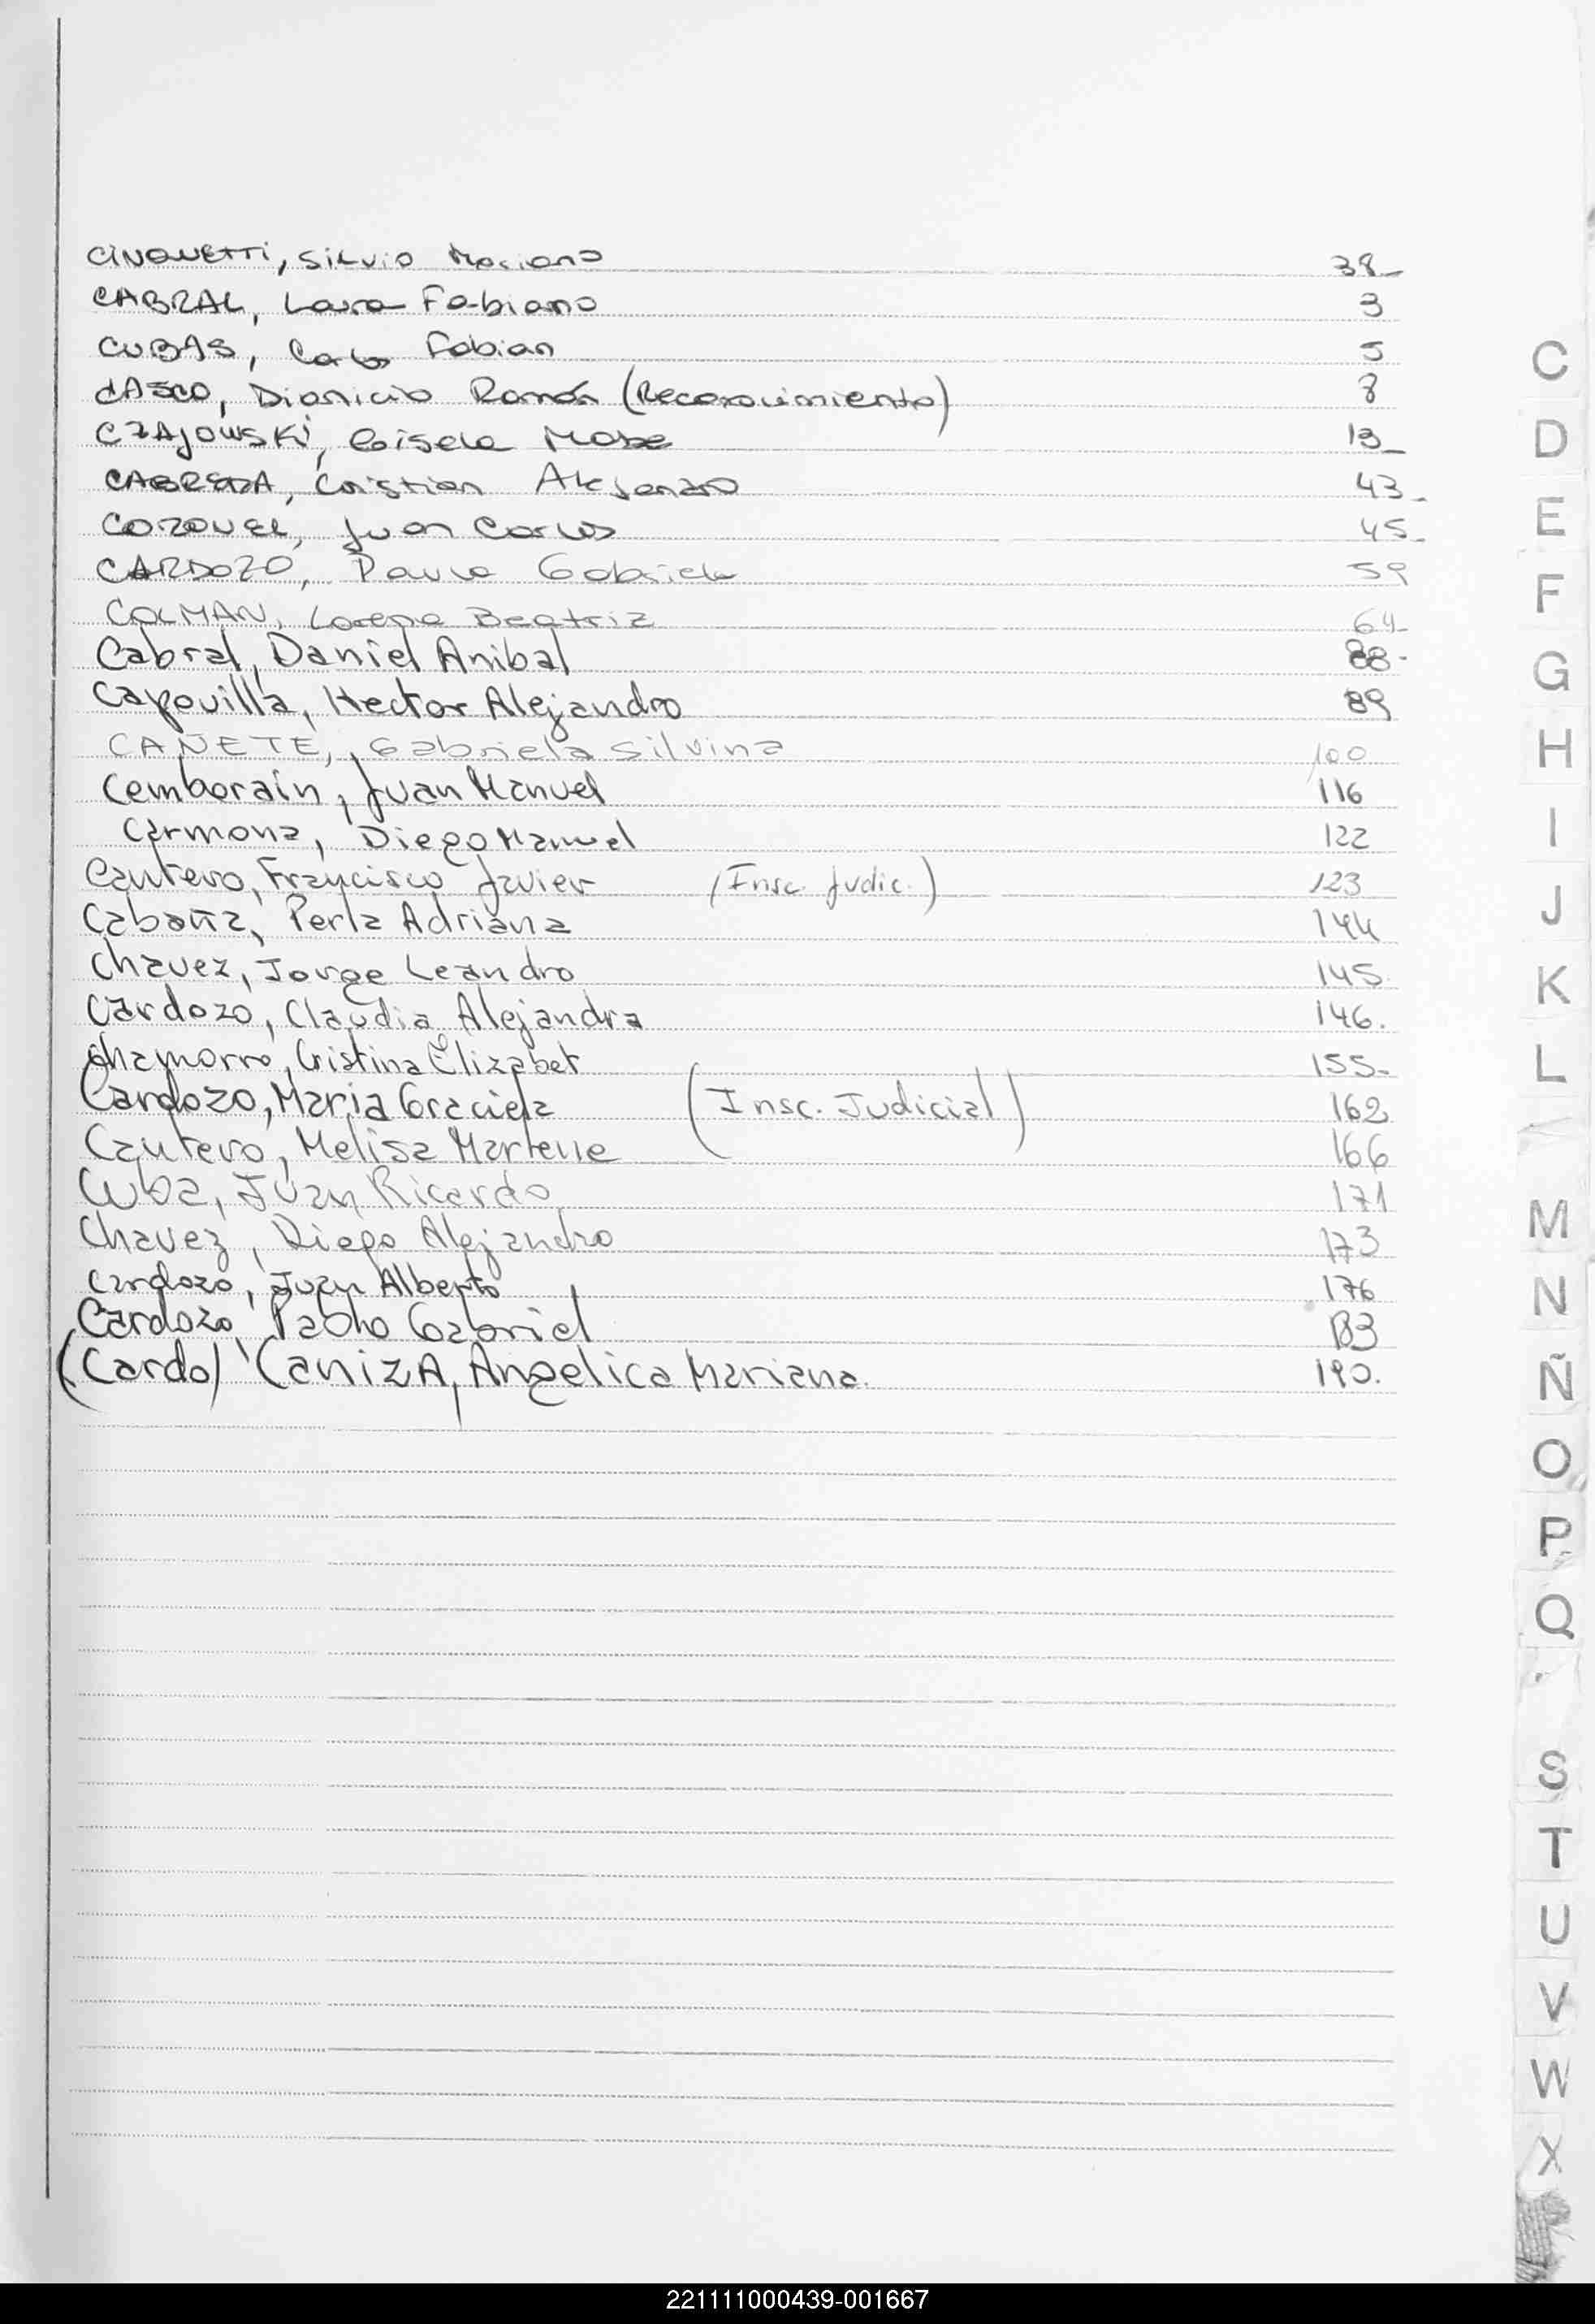 CINQUETTI, Silvio Mariano 38-
CABRAL, Laura Fabiana 3
CUBAS, Carlos Fabian 5
CASCO, Dionicio Ramón (Reconocimiento) 8
CZAJOWSKI, Gisela 13-
CABRERA, Cristian Alejandro 43-
CORONEL, Juan Carlos 45-
CARDOZO, Paula Gabriela 59
COLMAN, Lorena Beatriz 64-
Cabral, Daniel Anibal 88-
Capovilla, Hector Alejandro 89
CAÑETE, Gabriela Silvina 100
Cemborain, Juan Manuel 116
Carmona, Diego Manuel 122
Cantero, Francisco Javier (Insc. Judic.) 123
Cabaña, Perla Adriana 144
Chavez, Jorge Leandro 145
Cardozo, Claudia Alejandra 146.
Chamorro, Cristina Elizabet 155-
Cardozo, Maria Graciela (Insc. Judicial) 162
Cantero, Melisa Marlene 166
Cuba, Juan Ricardo 171
Chavez, Diego Alejandro 173
Cardozo, Juan Alberto 176
Cardozo, Pablo Gabriel 183
(Cardo) CanizA, Angelica Mariana. 190.
C
D
E
F
G
H
I
J
K
L
M
N
Ñ
O
P
Q
S
T
U
V
W
X
221111000439-001667